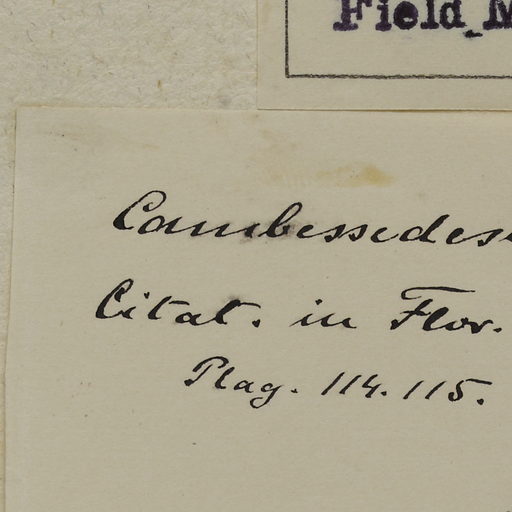 Field M
Cambessedes
Citat. in Flor.
Plag. 114. 115.